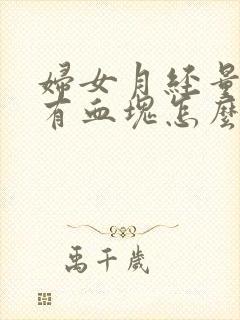 婦女月経量
有血塊怎麼
禹千歲